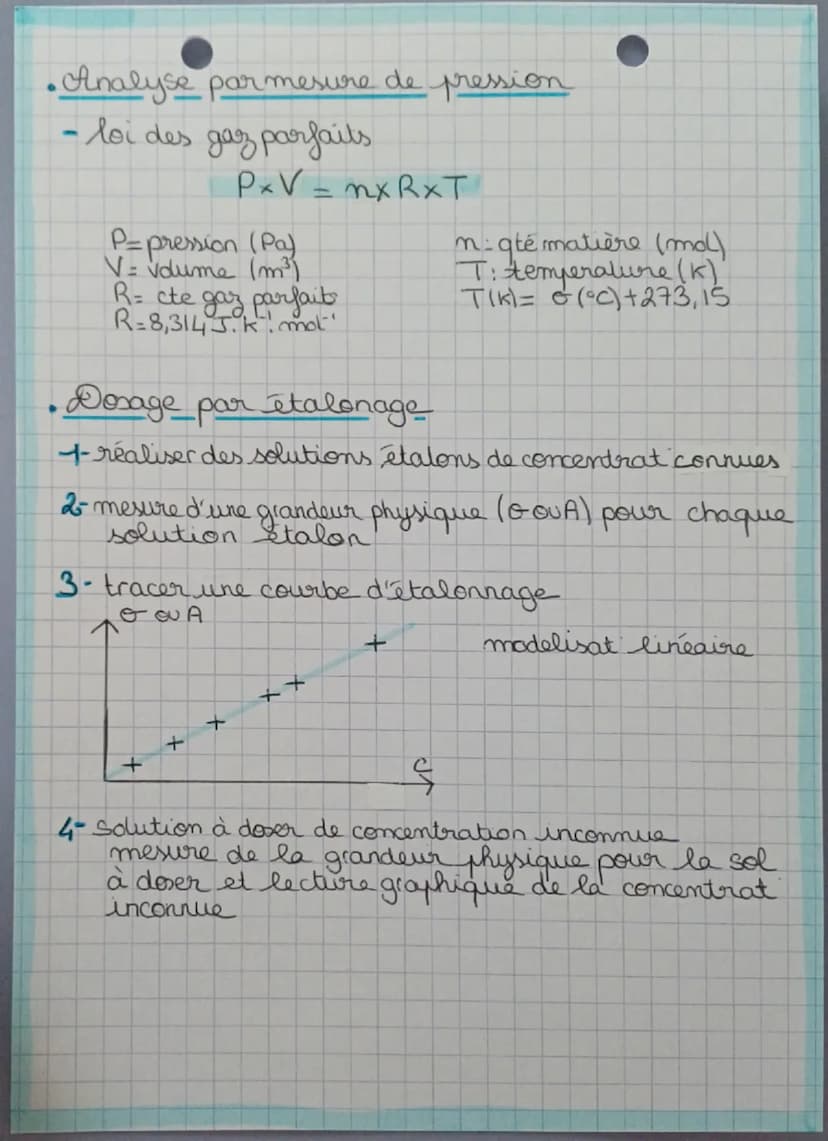 . Analyse par mesure de pression
- loi des gaz parfaits
P×V = n×R×T
P= pression (Pa)
V= volume (m³)
R= cte gaz parfaits
R=8,314 J.k⁻¹.mol⁻¹
n: qté matière (mol)
T: température (K)
T(K)= σ(°C)+273,15
. Dosage par étalonage
1- réaliser des solutions étalons de concentrat° connues
2- mesure d'une grandeur physique (σ ou A) pour chaque
solution étalon
3- tracer une courbe d'étalonnage
σ ou A
modelisat° linéaire
C
4- solution à doser de concentration inconnue
mesure de la grandeur physique pour la sol
à doser et lecture graphique de la concentrat°
inconnue